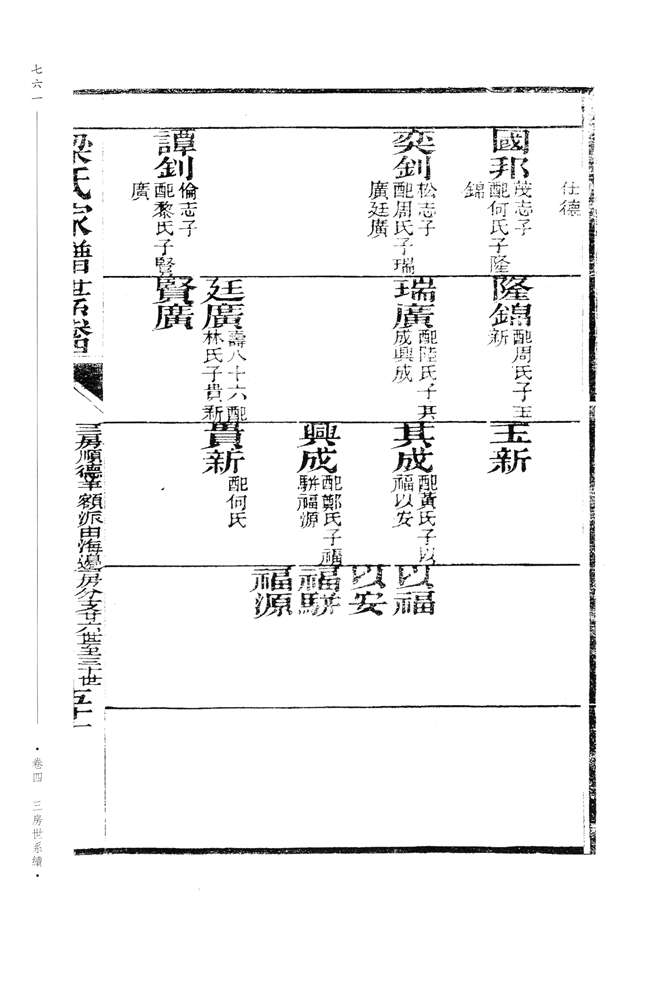 仕德
國邦
茂志子
配何氏子隆
錦
奕釗
松志子
配周氏子瑞
廣廷廣
譚釗
倫志子
配黎氏子賢
廣
隆錦
配周氏子玉
新
瑞廣
配陸氏子其
成興成
廷廣
壽八十六配
林氏子貴新
賢廣
玉新
其成
配黃氏子以
福以安
興成
配鄭氏子福
駢福源
貴新
配何氏
以福
以安
福駢
福源
梁氏家譜世系卷四
三房順德羊額派由海邊房分支廿六世至三十世
五十一
七六一
·卷四 三房世系續·